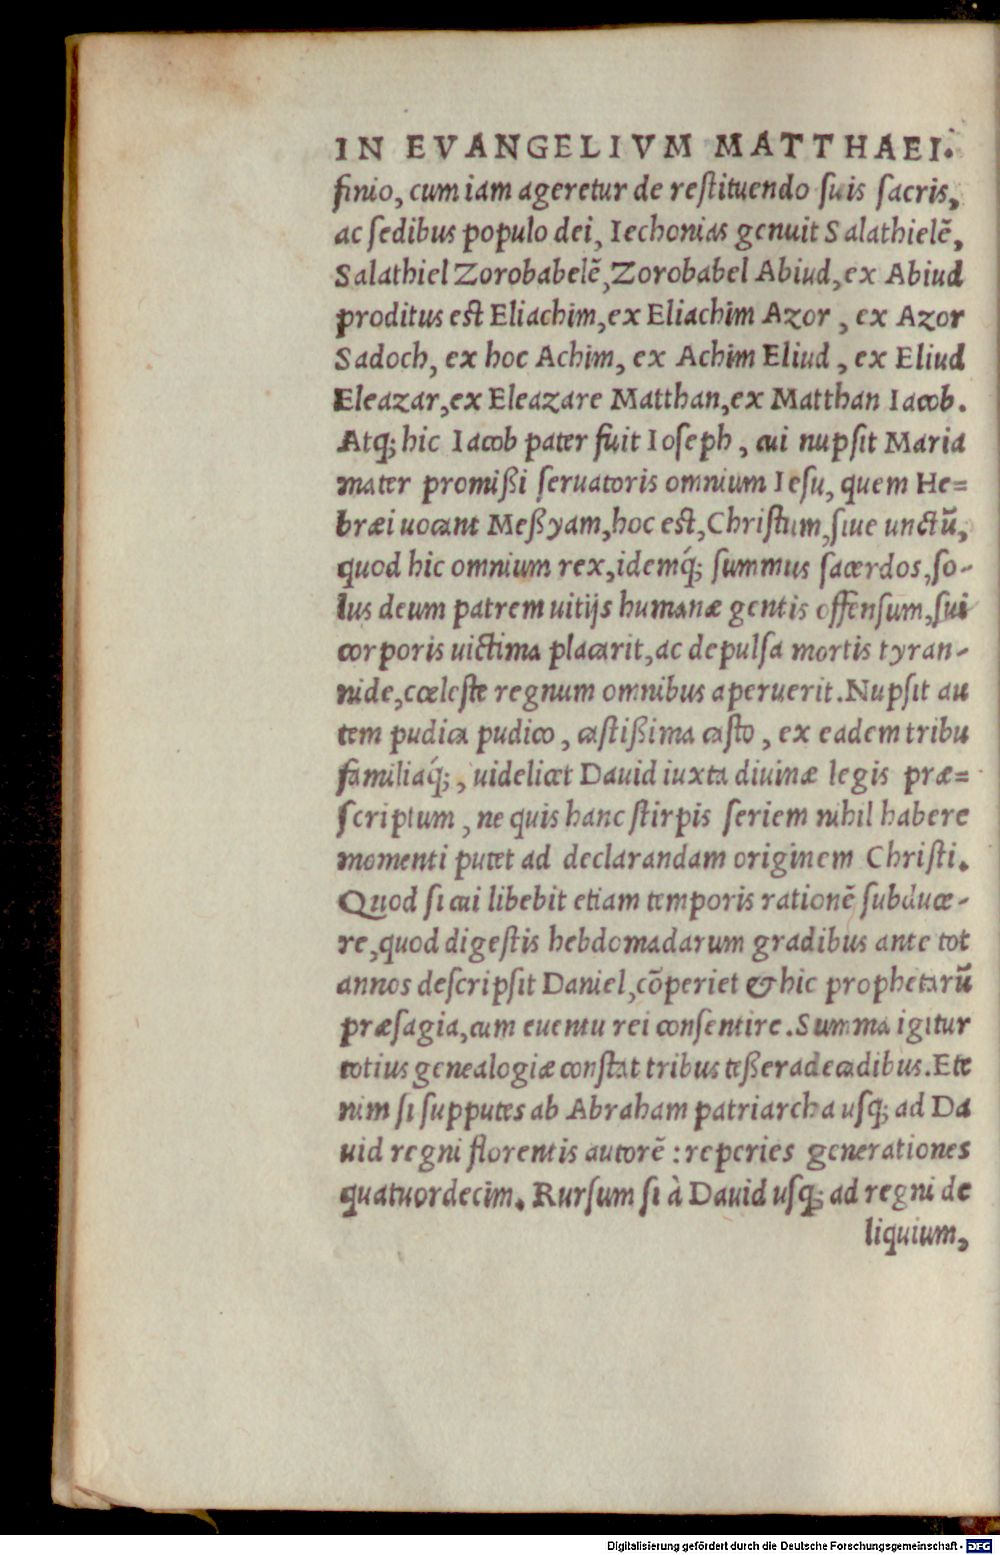 IN EVANGELIVM MATTHAEI.
finio, cum iam ageretur de reſtituendo ſuis ſacris,
ac ſedibus populo dei, Iechonias genuit Salathielē,
Salathiel Zorobabelē, Zorobabel Abiud, ex Abiud
proditus est Eliachim, ex Eliachim Azor, ex Azor
Sadoch, ex hoc Achim, ex Achim Eliud, ex Eliud
Eleazar, ex Eleazare Matthan, ex Matthan Iacob.
Atq; hic Iacob pater fuit Ioseph, cui nupſit Maria
mater promißi ſeruatoris omnium Ieſu, quem He=
bræi uocant Meßyam, hoc est, Chriſtum, ſiue unctū,
quod hic omnium rex, idemq́; ſummus ſacerdos, ſo-
lus deum patrem uitijs humanæ gentis offenſum, ſui
corporis uictima placarit, ac depulſa mortis tyran-
nide, cœleſte regnum omnibus aperuerit. Nupſit au
tem pudica pudico, caſtißima caſto, ex eadem tribu
familiaq́;, uidelicet Dauid iuxta diuinæ legis præ=
ſcriptum, ne quis hanc ſtirpis ſeriem nihil habere
momenti putet ad declarandam originem Chriſti.
Quod ſi cui libebit etiam temporis rationē ſubduce-
re, quod digeſtis hebdomadarum gradibus ante tot
annos deſcripſit Daniel, cōperiet & hic prophetarū
præſagia, cum euentu rei conſentire. Summa igitur
totius genealogiæ conſtat tribus teßeradecadibus. Ete
nim ſi ſupputes ab Abraham patriarcha uſq; ad Da
uid regni florentis autorē: reperies generationes
quatuordecim. Rurſum ſi à Dauid uſq; ad regni de
liquium,
Digitalisierung gefördert durch die Deutsche Forschungsgemeinschaft - DFG